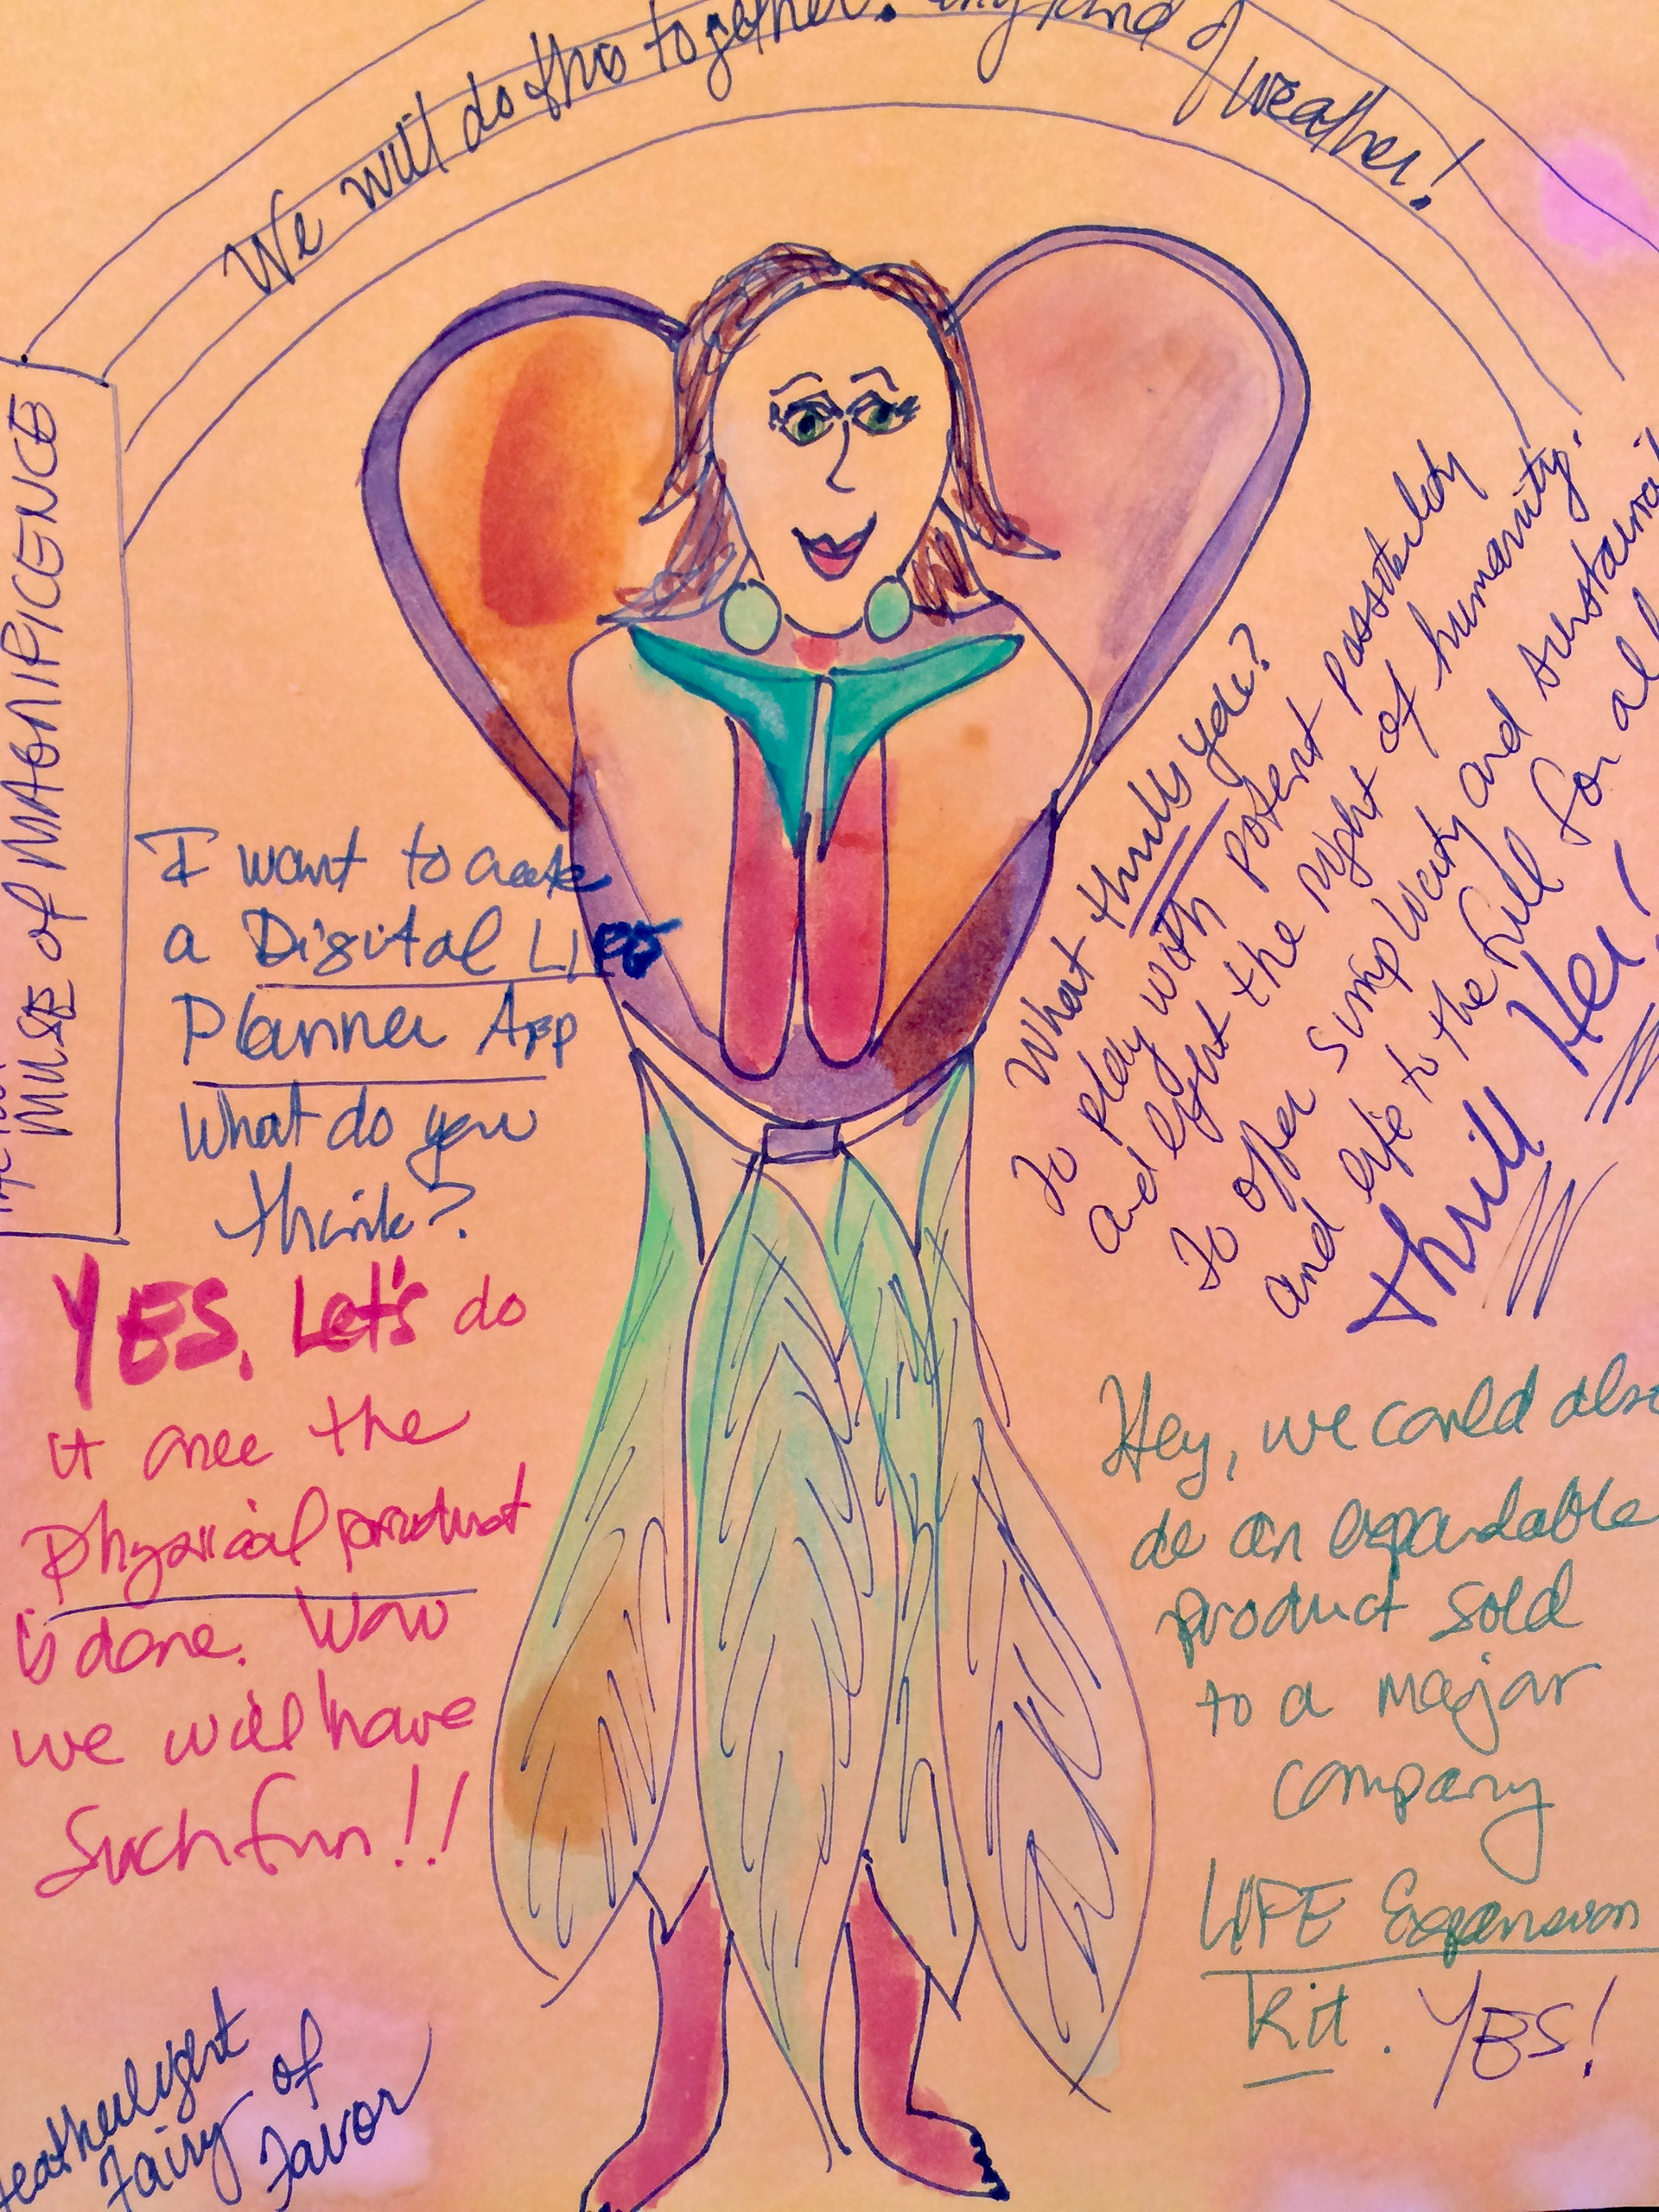 We will do this together. Any kind of weather!
MUSE of MAGNIFICENCE
I want to create
a Digital Life
Planner App
What do you
think?
YES, Let's do
it once the
Physical product
is done. Wow
we will have
Such fun!!
What thrills you?
To play with potent possibility
and light the right of humanity.
To offer simplicity and
and life to the full for all
thrill Her!
Hey, we could also
do an expandable
product sold
to a major
company
LIFE Expansion
Kit. YES!
Featherlight
Fairy of
Favor